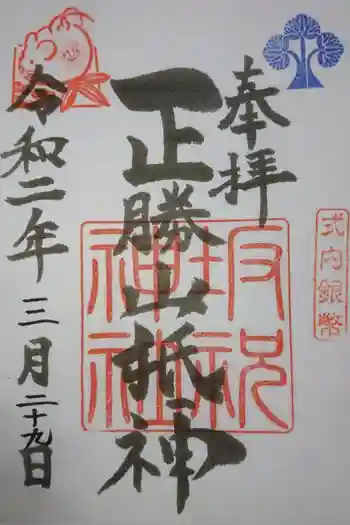 奉拝
式内銀幣
正勝山抵神
坂祝神社
令和二年
三月二十九日